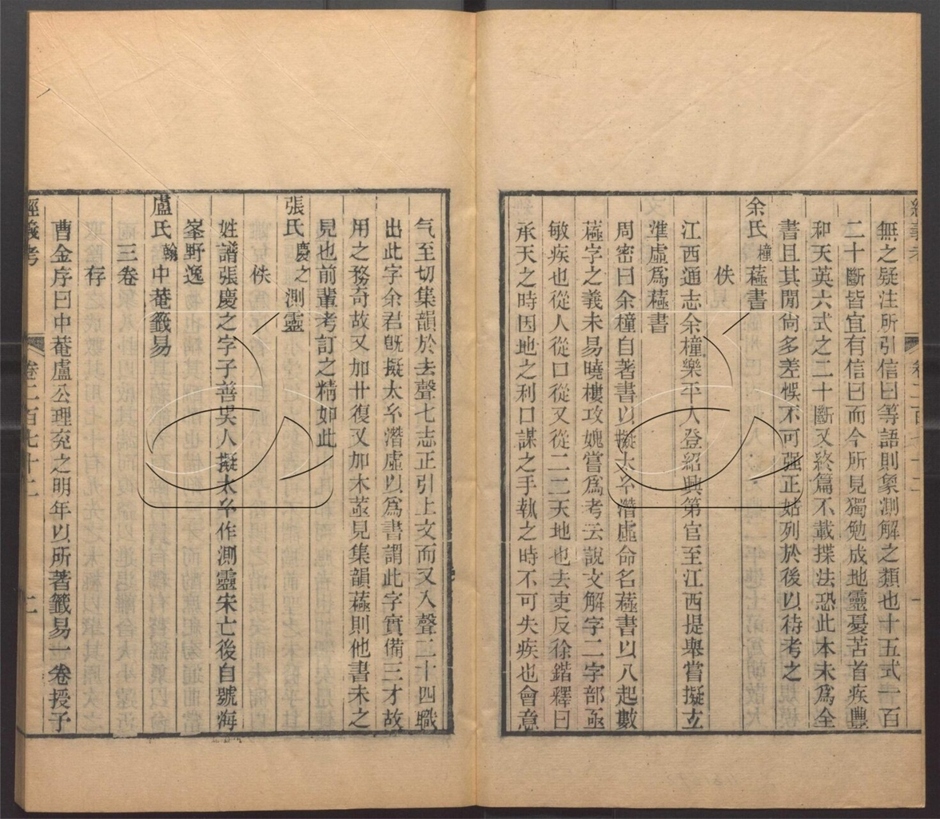 無之疑注所引信曰等語則象測解之類也十五式一百
二十斷皆宜有信曰而今所見獨勉成地靈憂苦首疾豐
和天英六式之二十斷又終篇不載揲法恐此本未爲全
書且其閒尙多差悞不可强正姑列於後以待考之
余氏橦蘊書
佚
江西通志余橦樂平人登紹興第官至江西提舉嘗擬玄
準虛爲蘊書
周密曰余橦自著書以擬太玄潛虛命名蘊書以八起數
蘊字之義未易曉樓攻媿嘗爲考云說文解字二字部亟
敏疾也從人從口從又從二二天地也去吏反徐鍇釋曰
承天之時因地之利口謀之手執之時不可失疾也會意
气至切集韻於去聲七志正引上文而又入聲二十四職
出此字余君旣擬太玄潛虛以爲書謂此字實備三才故
用之務奇故又加廿復又加木
見集韻
則他書未之
見也前輩考訂之精如此
張氏慶之測靈
佚
姓譜張慶之字子善吳人擬太玄作測靈宋亡後自號海
峯野逸
盧氏翰中菴籤易
三卷
存
曹金序曰中菴盧公理兗之明年以所著籤易一卷授子
經義考
卷二百七十二
二